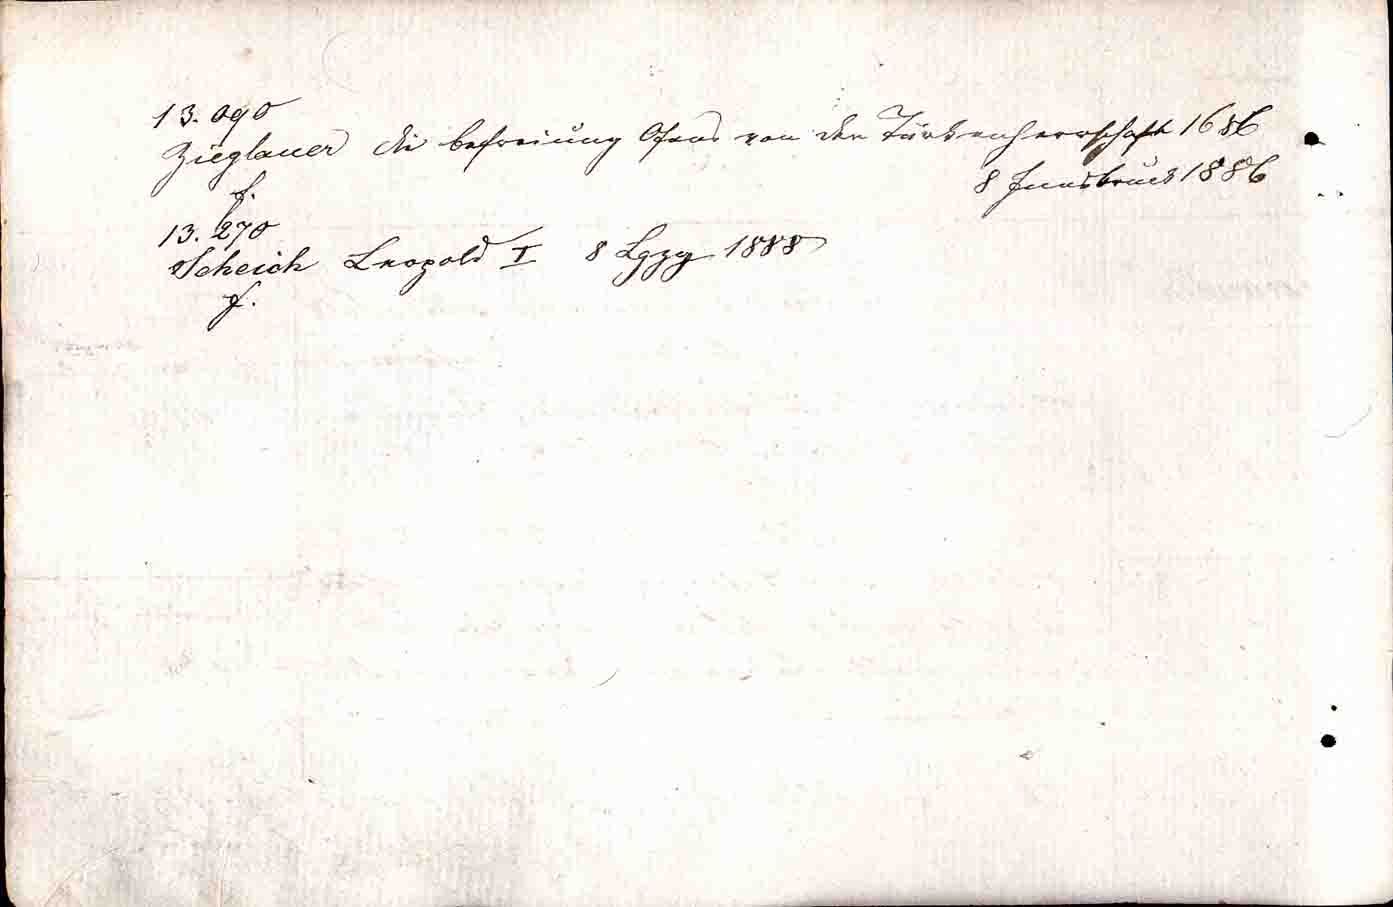 13.090
Zieglauer die Befreiung Ofens von der Türkenherrschaft 1686
8 Innsbruck 1886
f.
13.270
Scheich Leopold I 8 Lpzg 1888
f.